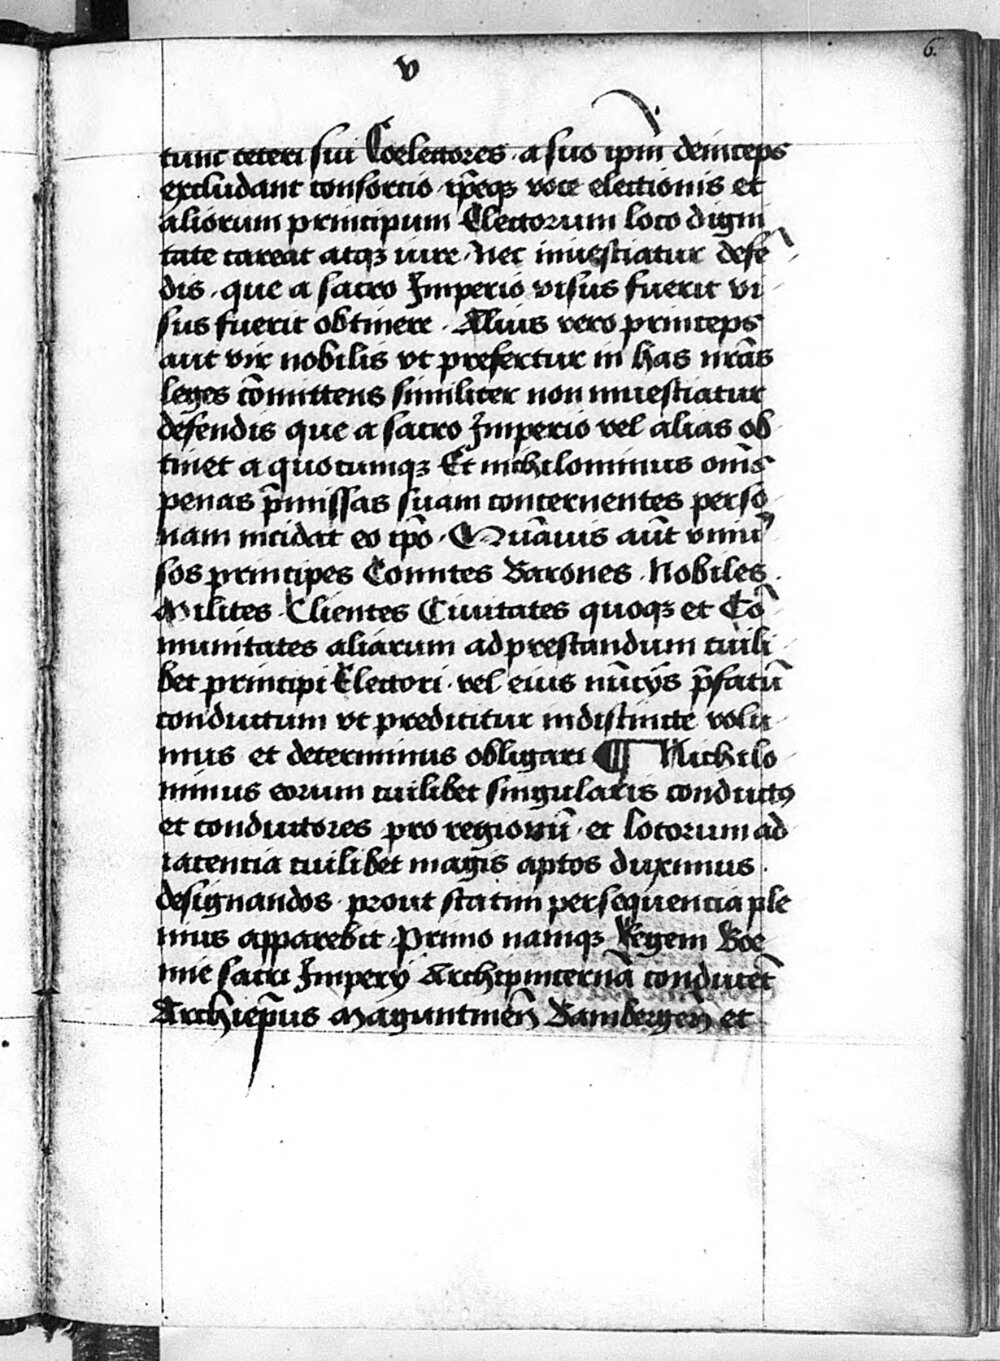 6.
v
tunc ceteri sui Coelectores a suo ip̄m deinceps
excludant consorcio ip̄eqꝫ voce electionis et
aliorum principum Electorum loco digni
tate careat atqꝫ iure Nec inuestiatur defe
dis que a sacro Imperio visus fuerit vi
sus fuerit obtinere Alius vero princeps
aut vir nobilis vt prefertur in has nr̄as
leges cōmittens similiter non inuestiatur
defendis que a sacro Imperio vel alias ob
tinet a quocumqꝫ Et nichilominus om̄s
penas p̄missas suam concernentes perso
nam incidat eo ip̄o Quāuis aūt vniu͛
sos principes Comites Barones Nobiles
Milites Clientes Ciuitates quoqꝫ et Cō
munitates aliarum ad prestandum cuili
bet principi Electori vel eius nūcijs p̄fatū
conductum vt predicitur indistincte volu
mus et determinus obligari ¶ Nichilo
minus eorum cuilibet singularis conductꝰ
et conductores pro regionū et locorum ad
iacencia cuilibet magis aptos duximus
designandos prout statim per sequencia ple
nius apparebit Primo namqꝫ Regem Boe
mie sacri Imperij Archipincernā conducet̄
Archiep̄us Maguntineñ Bambergeñ et